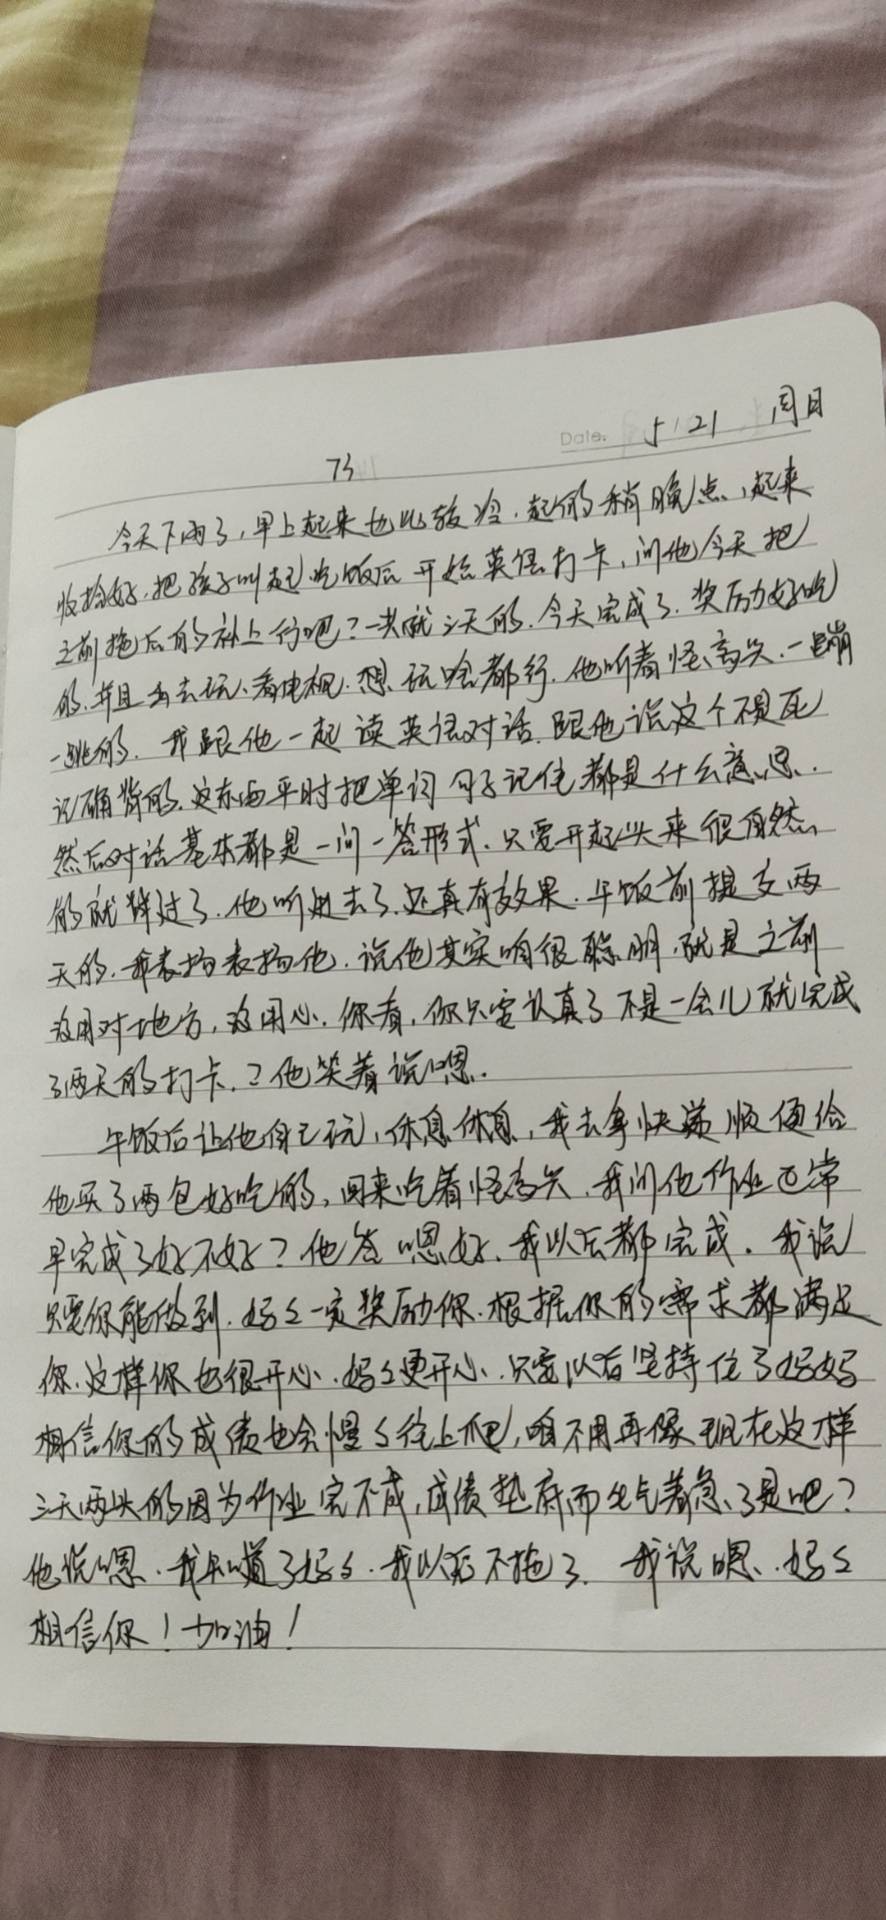 Date. 5/21 周日
73
今天下雨了,早上起来也比较冷.起的稍晚点,起来
收拾好.把孩子叫起吃饭后开始英语打卡,问他今天把
之前拖后的补上行吧?一共就三天的.今天完成了.奖励好吃
的.并且出去玩、看电视.想玩啥都行.他听着怪高兴.一蹦
一跳的.我跟他一起读英语对话.跟他说这个不是死
记硬背的.这东西平时把单词句子记住都是什么意思.
然后对话基本都是一问一答形式.只要开起头来很自然
的就背过了.他听进去了.还真有效果.午饭前提交两
天的.我表扬表扬他.说他其实咱很聪明.就是之前
没用对地方,没用心.你看,你只要认真了不是一会儿就完成
了两天的打卡.?他笑着说嗯.
午饭后让他自己玩,休息休息,我去拿快递顺便给
他买了两包好吃的,回来吃着怪高兴.我问他作业正常
早完成了好不好?他答嗯好、我以后都完成.我说
只要你能做到.妈々一定奖励你.根据你的需求都满足
你.这样你也很开心.妈々更开心.只要以后坚持住了妈妈
相信你的成绩也会慢々往上爬,咱不用再像现在这样
三天两头的因为作业完不成,成绩垫底而生气着急了是吧?
他说嗯.我知道了妈々.我以后不拖了.我说嗯、妈々
相信你!加油!